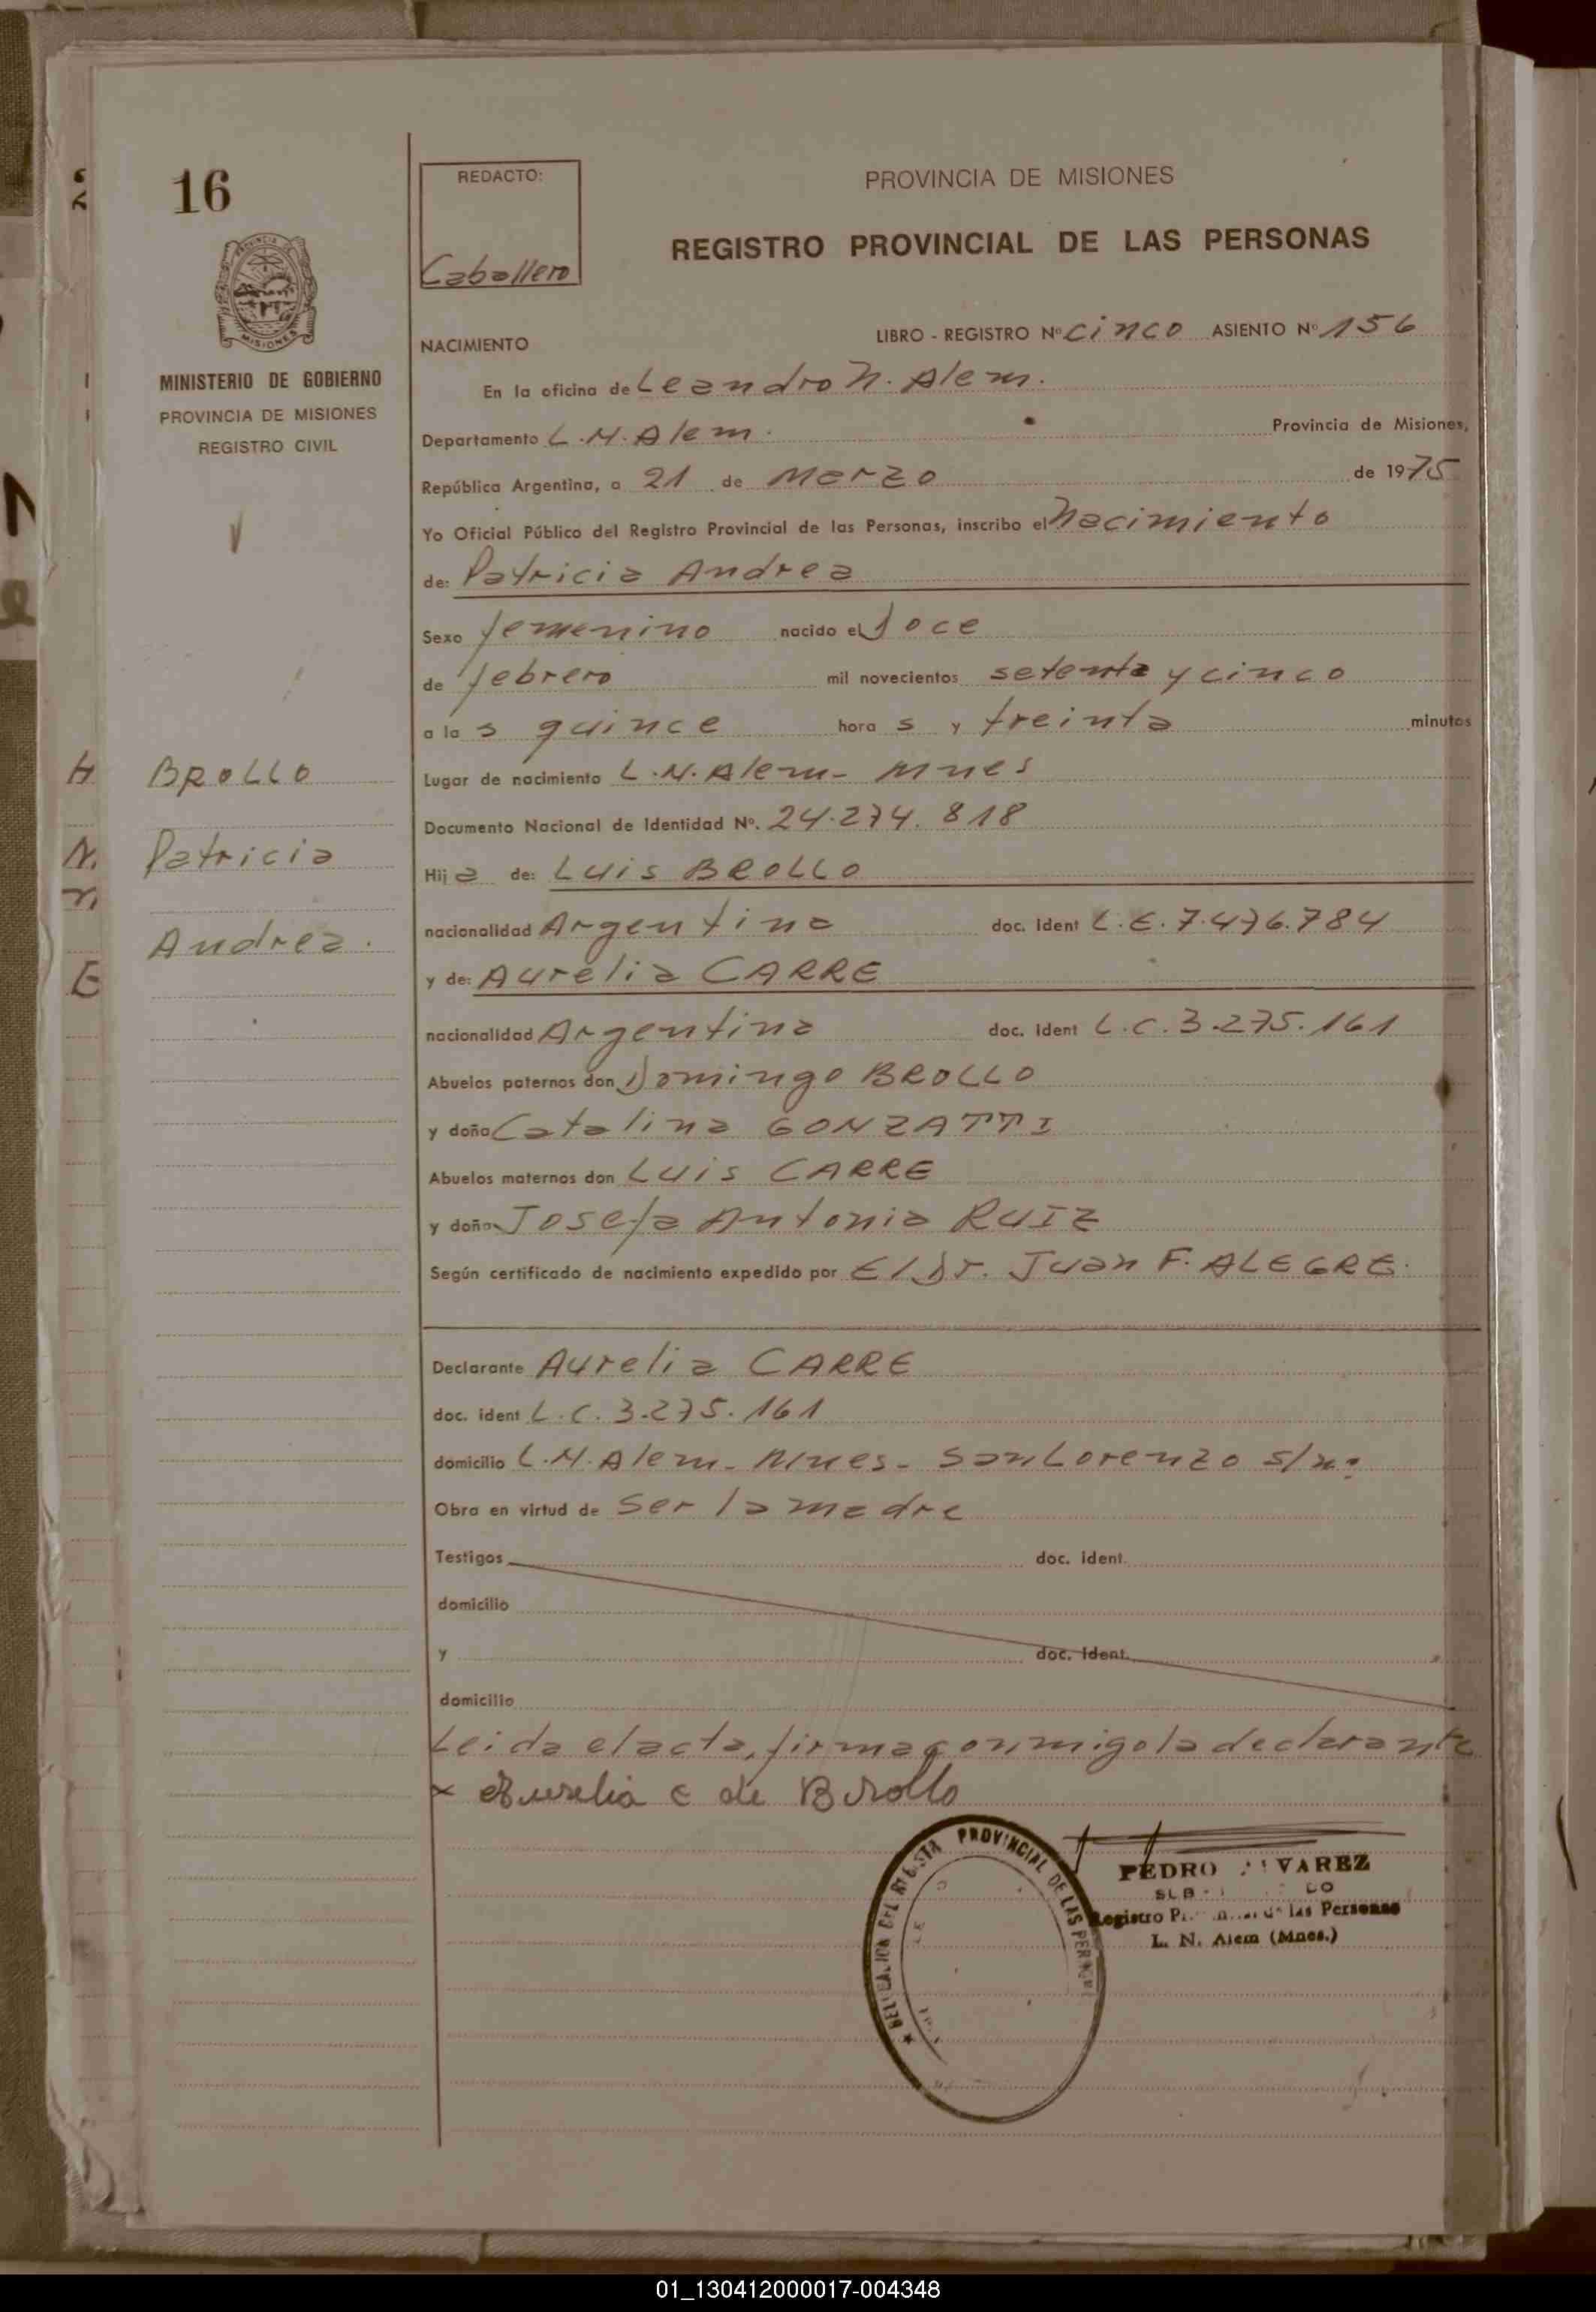 16
PROVINCIA DE
MISIONES
MINISTERIO DE GOBIERNO
PROVINCIA DE MISIONES
REGISTRO CIVIL
BROLLO
Patricia
Andrea.
REDACTO:
Caballero
PROVINCIA DE MISIONES
REGISTRO PROVINCIAL DE LAS PERSONAS
LIBRO - REGISTRO Nº cinco ASIENTO Nº 156
NACIMIENTO
En la oficina de Leandro N. Alem.
Departamento L.N.Alem. Provincia de Misiones,
República Argentina, a 21 de Marzo de 1975
Yo Oficial Público del Registro Provincial de las Personas, inscribo el Nacimiento
de: Patricia Andrea
Sexo femenino nacido el doce
de febrero mil novecientos setenta y cinco
a las quince horas y treinta minutos
Lugar de nacimiento L.N.Alem- Mnes
Documento Nacional de Identidad Nº. 24.274.818
Hija de: Luis BROLLO
nacionalidad Argentina doc. ident L.E.7.476.784
y de: Aurelia CARRE
nacionalidad Argentina doc. ident L.C.3.275.161
Abuelos paternos don Domingo BROLLO
y doña Catalina GONZATTI
Abuelos maternos don Luis CARRE
y doña Josefa Antonia RUIZ
Según certificado de nacimiento expedido por El Dr. Juan F. ALEGRE.
Declarante Aurelia CARRE
doc. ident L.C. 3.275.161
domicilio L.N.Alem- Mnes- San Lorenzo s/nº
Obra en virtud de ser la madre
Testigos doc. ident.
domicilio
y doc. ident.
domicilio
Leida el acta, firma conmigo la declarante
x Aurelia C de Brollo
PROVINCIAL DE LAS
PEDRO
Registro las Personas
L. N. Alem (Mnes.)
01_130412000017-004348